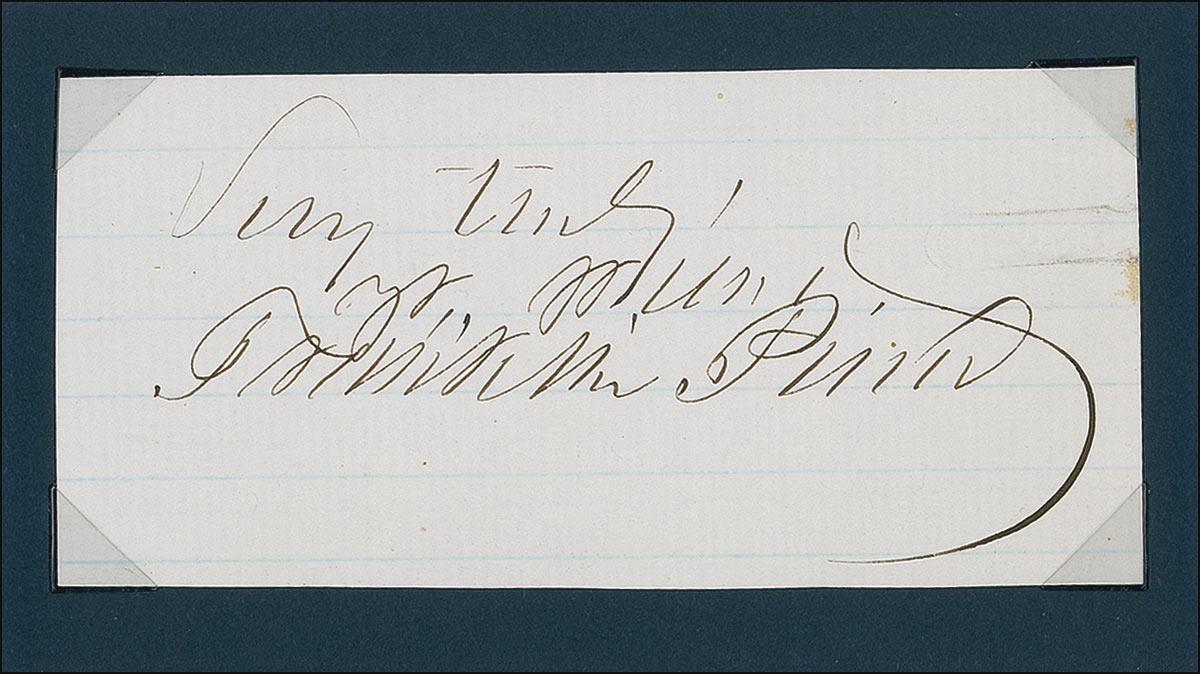 Very truly
yr. friend,
Franklin Pierce